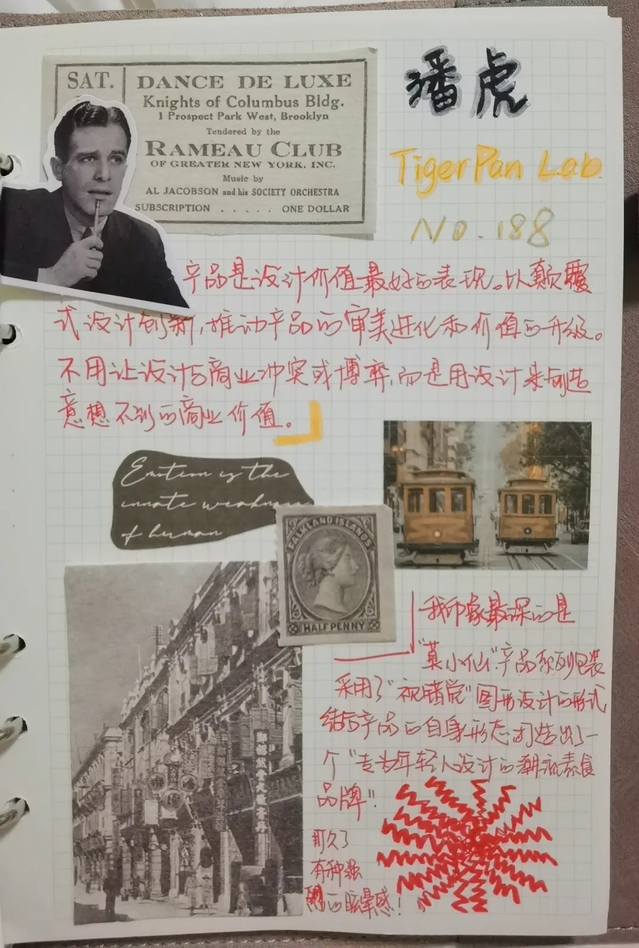 SAT.
DANCE DE LUXE
Knights of Columbus Bldg.
1 Prospect Park West, Brooklyn
Tendered by the
RAMEAU CLUB
OF GREATER NEW YORK, INC.
Music by
AL JACOBSON and his SOCIETY ORCHESTRA
SUBSCRIPTION . . . . . ONE DOLLAR
潘虎
TigerPan Lab.
NO.188
产品是设计价值最好的表现。以颠覆
式设计创新,推动产品的审美进化和价值的升级。
不用让设计与商业冲突或博弈,而是用设计来创造
意想不到的商业价值。
Emotion is the
innate weakness
of human
FALKLAND ISLANDS
HALFPENNY
我印象最深的是
"莫小仙"产品系列包装
采用了"视错觉"图形设计的形式
结合产品的自身形态,打造出了一
个"专为年轻人设计的潮流素食
品牌"!
盯久了
有种强
烈的眩晕感!